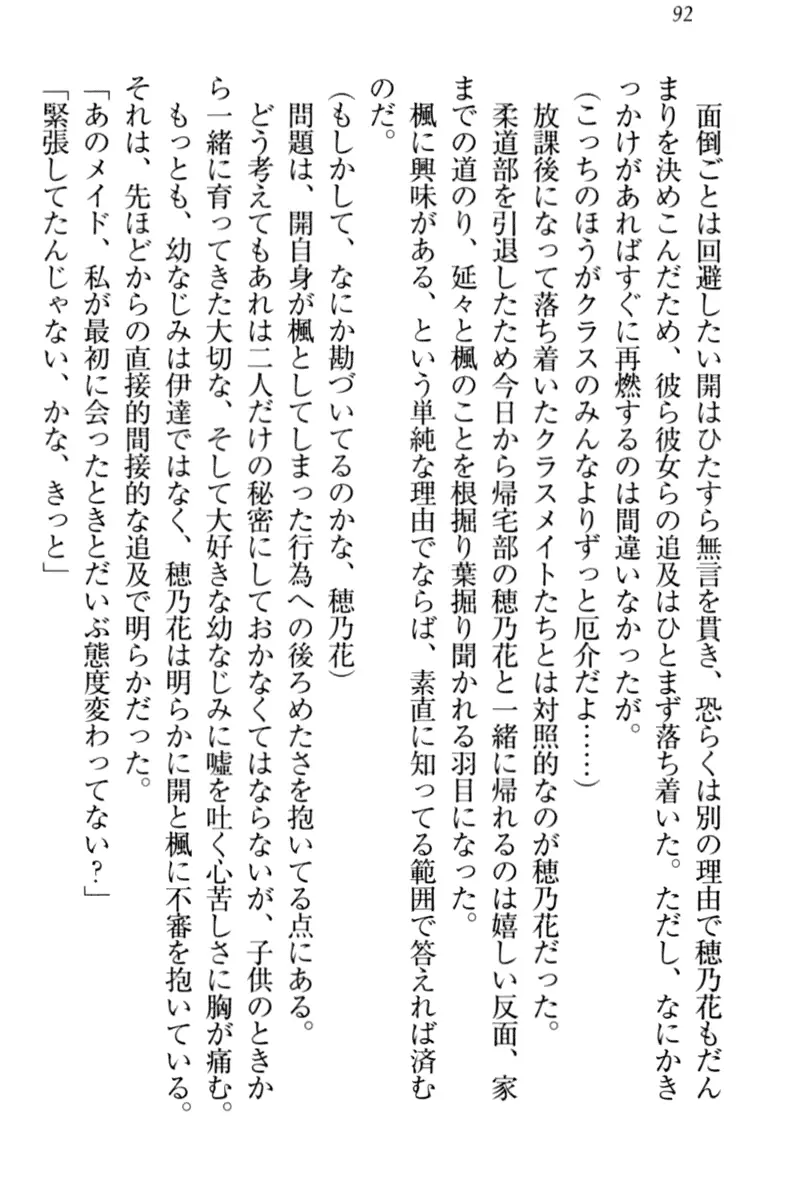 92
面倒ごとは回避したい開はひたすら無言を貫き、恐らくは別の理由で穂乃花もだん
まりを決めこんだため、彼ら彼女らの追及はひとまず落ち着いた。ただし、なにかき
っかけがあればすぐに再燃するのは間違いなかったが。
(こっちのほうがクラスのみんなよりずっと厄介だよ……)
放課後になって落ち着いたクラスメイトたちとは対照的なのが穂乃花だった。
柔道部を引退したため今日から帰宅部の穂乃花と一緒に帰れるのは嬉しい反面、家
までの道のり、延々と楓のことを根掘り葉掘り聞かれる羽目になった。
楓に興味がある、という単純な理由でならば、素直に知ってる範囲で答えれば済む
のだ。
(もしかして、なにか勘づいてるのかな、穂乃花)
問題は、開自身が楓としてしまった行為への後ろめたさを抱いてる点にある。
どう考えてもあれは二人だけの秘密にしておかなくてはならないが、子供のときか
ら一緒に育ってきた大切な、そして大好きな幼なじみに嘘を吐く心苦しさに胸が痛む。
もっとも、幼なじみは伊達ではなく、穂乃花は明らかに開と楓に不審を抱いている。
それは、先ほどからの直接的間接的な追及で明らかだった。
「あのメイド、私が最初に会ったときとだいぶ態度変わってない?」
「緊張してたんじゃない、かな、きっと」